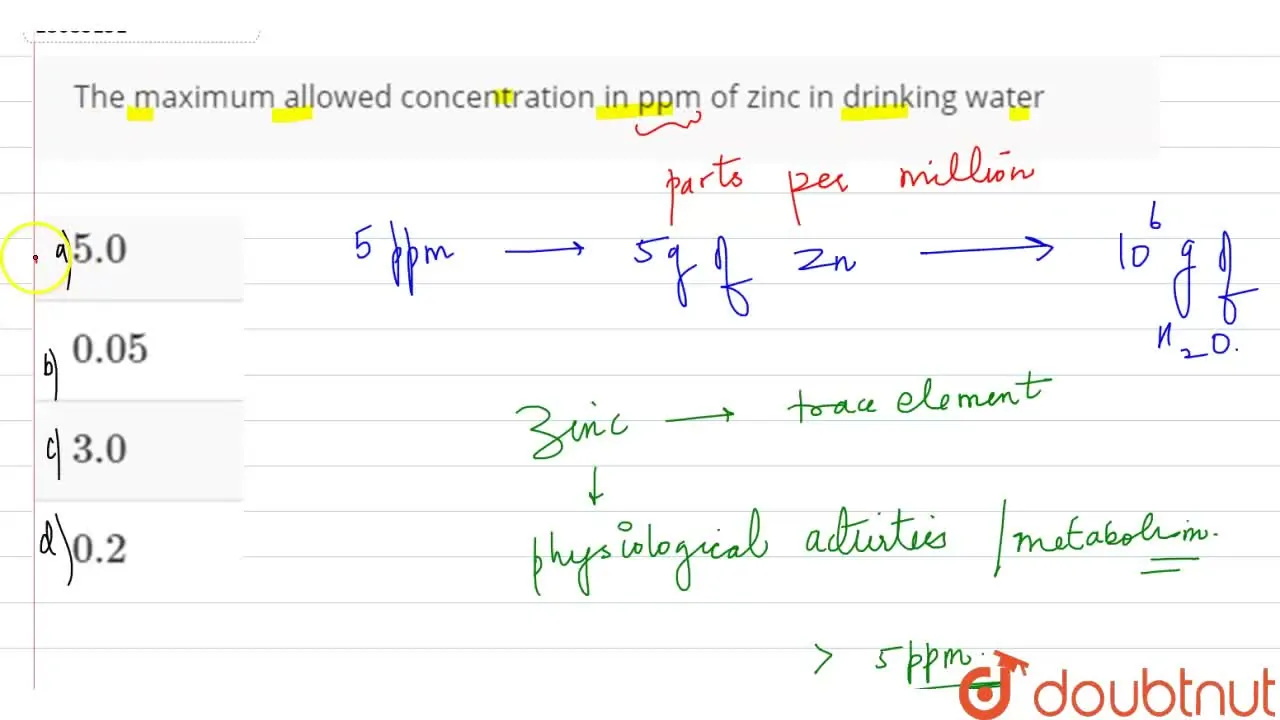 The maximum allowed concentration in ppm of zinc in drinking water
parts per million
a) 5.0
5 ppm → 5g of Zn → 10⁶ g of
H₂O.
b) 0.05
Zinc → trace element
c) 3.0
↓
physiological activities / metabolism.
d) 0.2
> 5 ppm.
doubtnut